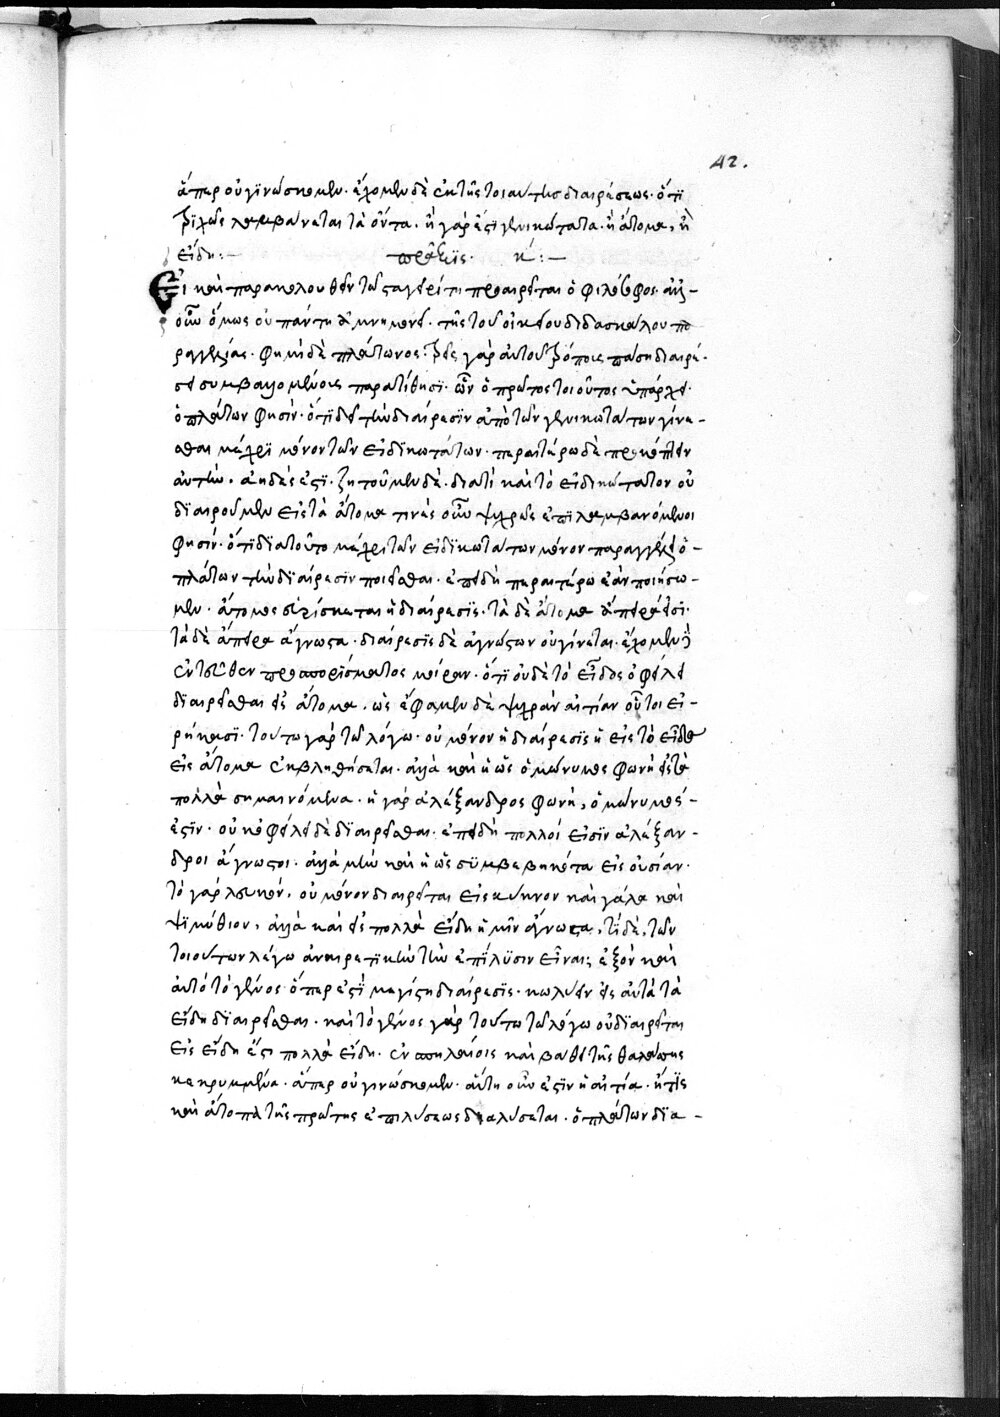 42.
ἅπερ οὐ γϊνώσκομεν. ἔχομεν δὲ ἐκ τῆς τοιαύτης διαιρέσεως. ὅτϊ
τριχῶς λαμβάνεται τὰ ὄντα. ἢ γάρ ἐστϊ γενικώτατα. ἢ ἄτομα, ἢ
εἴδη:— πρᾶξϊς. κ΄:—
Εἰ καὶ παρακολουθεῖν τῶ σταγειρίτη προαιρεῖται ὁ φιλόσοφος. ἀλλ-
οὖν ὅμως οὐ πάντη ἀμνημονεῖ. τῆς τοῦ οἰκείου διδασκάλου πα
ραγγελίας. φημὶ δὲ πλάτωνος. τρεῖς γὰρ αὐτοῦ τρόποις πάση διαιρέ-
σει συμβαλλομένοις παρατίθησϊ. ὧν ὁ πρῶτος τοιοῦτος ὑπάρχει.
ὁ πλάτων φησίν. ὅτϊ δεῖ τὴν διαίρεσϊν ἀπὸ τῶν γενικωτάτων γίνε-
σθαι μέχρϊ μόνον τῶν εἰδϊκωτάτων. περαιτέρω δὲ προκόπτειν
αὐτὴν. ἀηδές ἐστϊ. ζητοῦμεν δὲ. διατὶ καὶ τὸ εἰδικώτατον οὐ
δϊαιροῦμεν εἰς τὰ ἄτομα τινὲς οὖν ψυχρῶς ἐπϊλαμβανόμενοι
φησίν. ὅτϊ διατοῦτο μέχρι τῶν εἰδϊκωτάτων μόνον παραγγέλλει ὁ-
πλάτων τὴν δϊαίρεσϊν ποιεῖσθαι. ἐπειδὴ περαιτέρω ἐὰν ποιήσω-
μεν. ἀτόμοις εὑρίσκεται ἡ διαίρεσϊς. τὰ δὲ ἄτομα ἄπειρά εἰσϊ.
τὰ δὲ ἄπειρα ἄγνωστα. διαίρεσϊς δὲ ἀγνώστων οὐ γίνεται. ἔχομεν
ἐντεῦθεν προπορίσματος μοίραν. ὅτϊ οὐδὲ τὸ εἶδος ὀφείλει
δϊαιρεῖσθαι εἰς ἄτομα. ὡς ἔφαμεν δὲ ψυχρὰν αἰτίαν οὗτοι εἰ-
ρήκασϊ. τούτω γὰρ τῶ λόγω. οὐ μόνον ἡ διαίρεσϊς ἡ εἰς τὸ εἶδος
εἰς ἄτομα ἐκβληθήσεται. ἀλλὰ καὶ ἡ ὡς ὁμώνυμος φωνὴ εἰς τὰ
πολλὰ σημαινόμενα. ἡ γὰρ ἀλέξανδρος φωνὴ, ὁμώνυμός-
ἐστϊν. οὐκ ὀφείλει δὲ δϊαιρεῖσθαι. ἐπειδὴ πολλοί εἰσϊν ἀλέξαν-
δροι ἄγνωστοι. ἀλλὰ μὴν καὶ ἡ ὡς συμβεβηκότα εἰς οὐσίαν.
τὸ γὰρ λευκὸν. οὐ μόνον διαιρεῖται εἰς κύκνον καὶ γάλα καὶ
ψϊμύθιον, ἀλλὰ καὶ εἰς πολλὰ εἴδη ἡμῖν ἄγνωστα, τί δὲ, τῶν
τοιούτων λέγω ἀναιρετϊκὴν τὴν ἐπίλϋσιν εἶναι, ἐξὸν καὶ
αὐτὸ τὸ γένος ὅπερ ἐστϊ μεγίστη διαίρεσϊς. κωλύειν εἰς αὐτὰ τὰ
εἴδη δϊαιρεῖσθαι. καὶ τὸ γένος γὰρ τούτω τῶ λόγω οὐ δϊαιρεῖται
εἰς εἴδη ἔστι πολλὰ εἴδη. ἐν σπηλαίοις καὶ βάθει τῆς θαλάττης
κεκρυμμένα. ἅπερ οὐ γινώσκομεν. αὕτη οὖν ἐστϊν ἡ αἰτία. ἥτϊς
καὶ ἄτοπος τῆς πρώτης ἐπιλύσεως διαλύσεται. ὁ πλάτων δϊα-